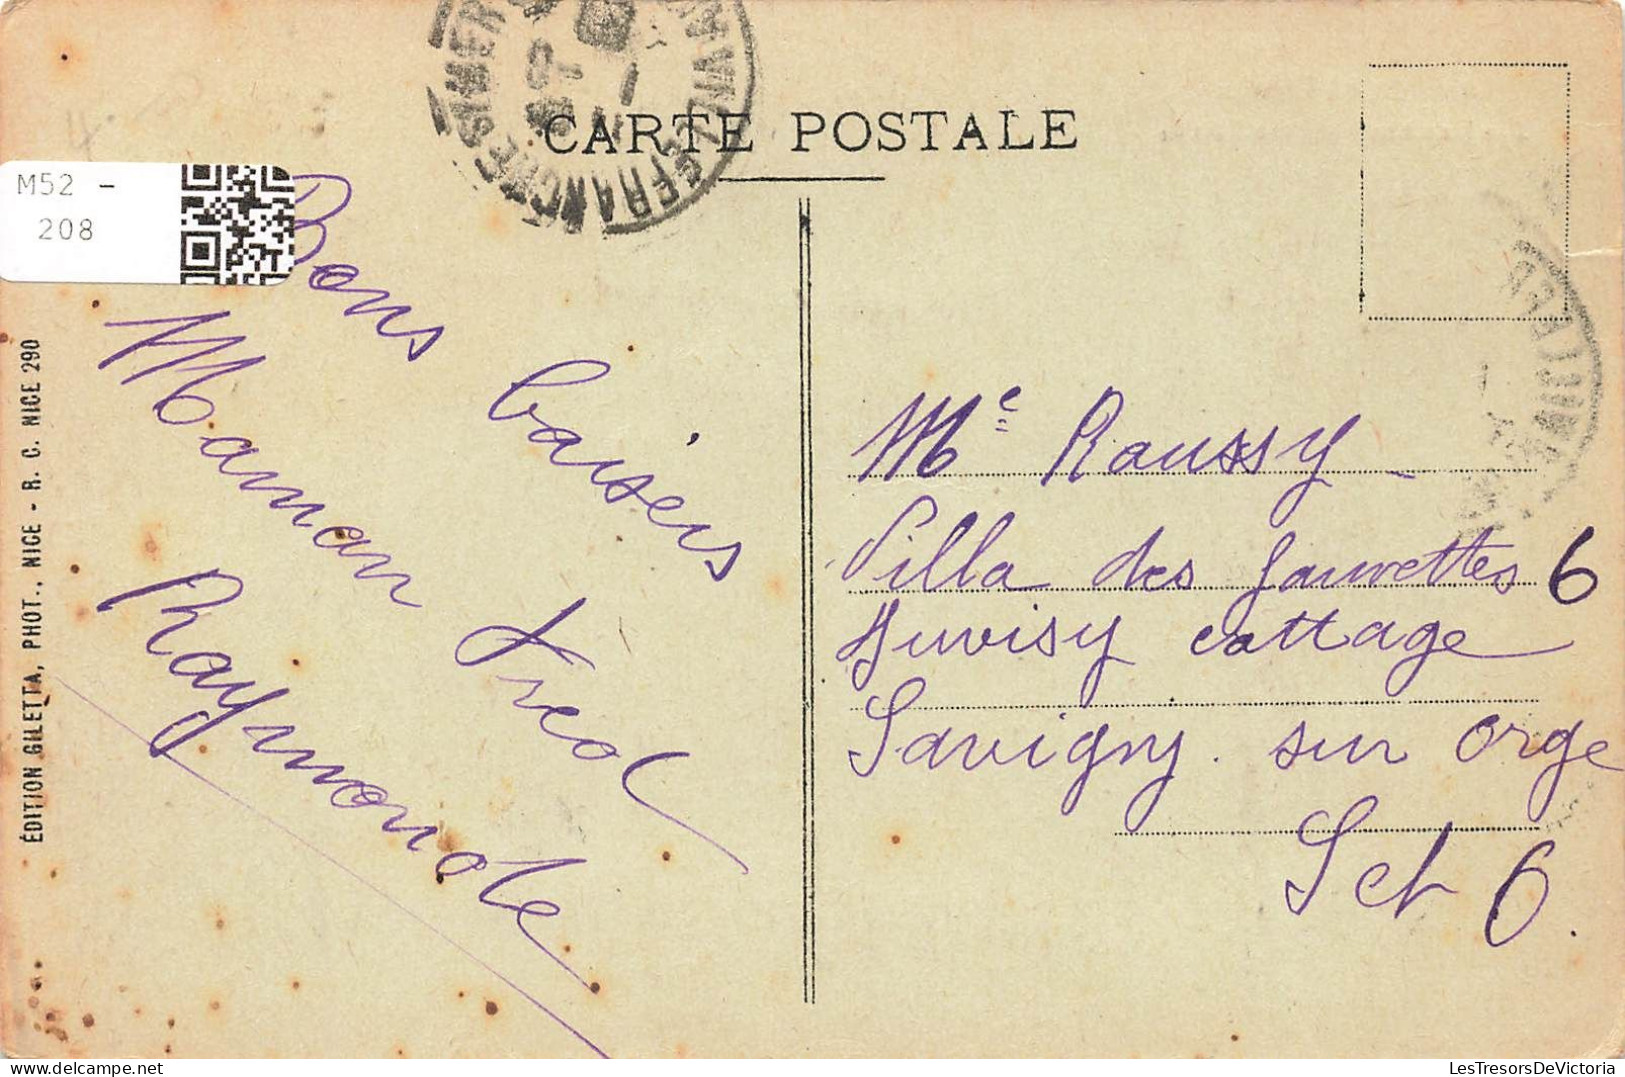 CARTE POSTALE
VILLEFRANCHE S/MER
M52 -
208
Bons baisers
Maman Fred
Raymonde
Me Raussy
Villa des fauvettes 6
Juvisy cottage
Savigny sur Orge
Set O.
ÉDITION GILETTA, PHOT., NICE - R. C. NICE 290
LesTresorsDeVictoria